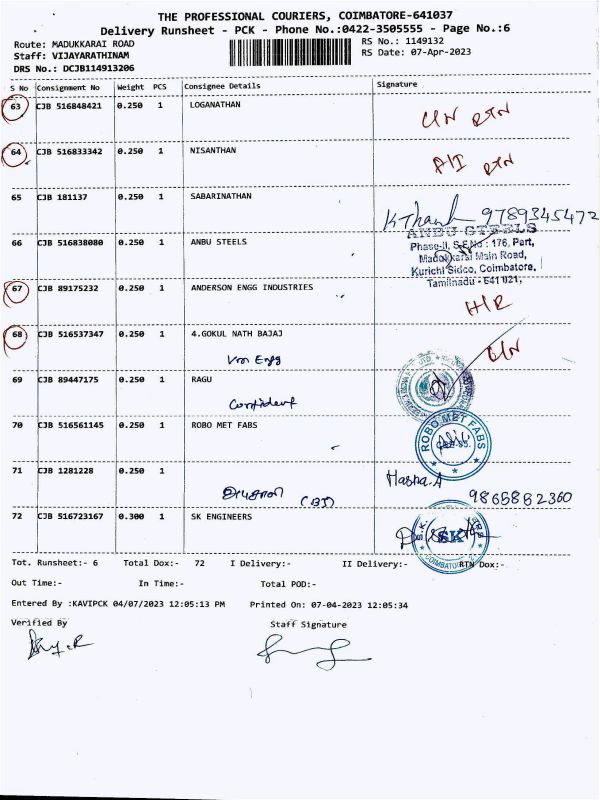 THE PROFESSIONAL COURIERS, COIMBATORE-641037
Delivery Runsheet - PCK - Phone No.:0422-3505555 - Page No.:6
Route: MADUKKARAI ROAD
RS No.: 1149132
Staff: VIJAYARATHINAM
RS Date: 07-Apr-2023
DRS No.: DCJB114913206
S No Consignment No Weight PCS Consignee Details Signature
63 CJB 516848421 0.250 1 LOGANATHAN
UN RTN
64 CJB 516833342 0.250 1 NISANTHAN
RTN
65 CJB 181137 0.250 1 SABARINATHAN
9789345472
ANBU STEELS
66 CJB 516838080 0.250 1 ANBU STEELS
Phase-II, S.F.No : 176, Part,
Madukkarai Main Road,
Kurichi Sidco, Coimbatore,
Tamilnadu - 641 021,
67 CJB 89175232 0.250 1 ANDERSON ENGG INDUSTRIES
68 CJB 516537347 0.250 1 4.GOKUL NATH BAJAJ
Engg
69 CJB 89447175 0.250 1 RAGU
Confident
70 CJB 516561145 0.250 1 ROBO MET FABS
ROBO MET FABS
71 CJB 1281228 0.250 1
9865862360
72 CJB 516723167 0.300 1 SK ENGINEERS
SK
COIMBATORE
Tot. Runsheet:- 6 Total Dox:- 72 I Delivery:- II Delivery:- RTN Dox:-
Out Time:- In Time:- Total POD:-
Entered By :KAVIPCK 04/07/2023 12:05:13 PM Printed On: 07-04-2023 12:05:34
Verified By Staff Signature